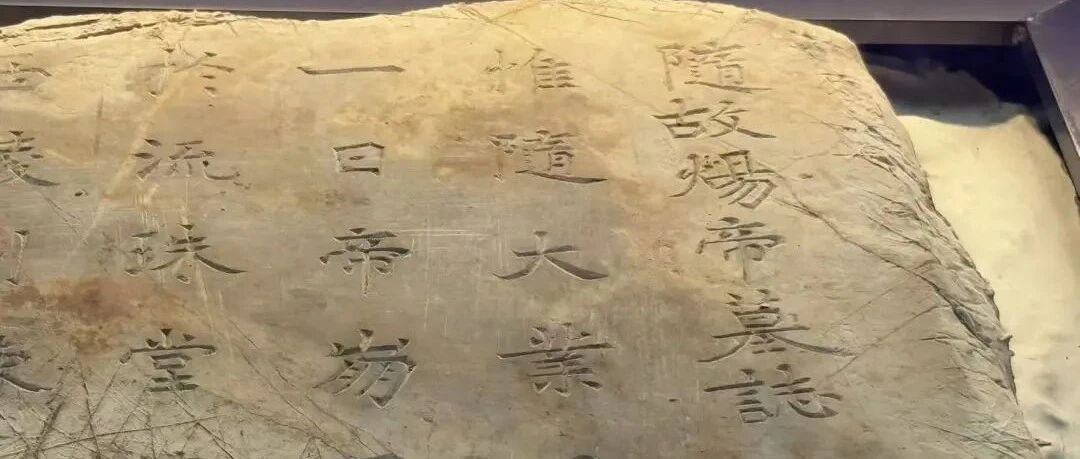 隨故煬帝墓誌
惟隨大業
一日帝崩
於流珠堂